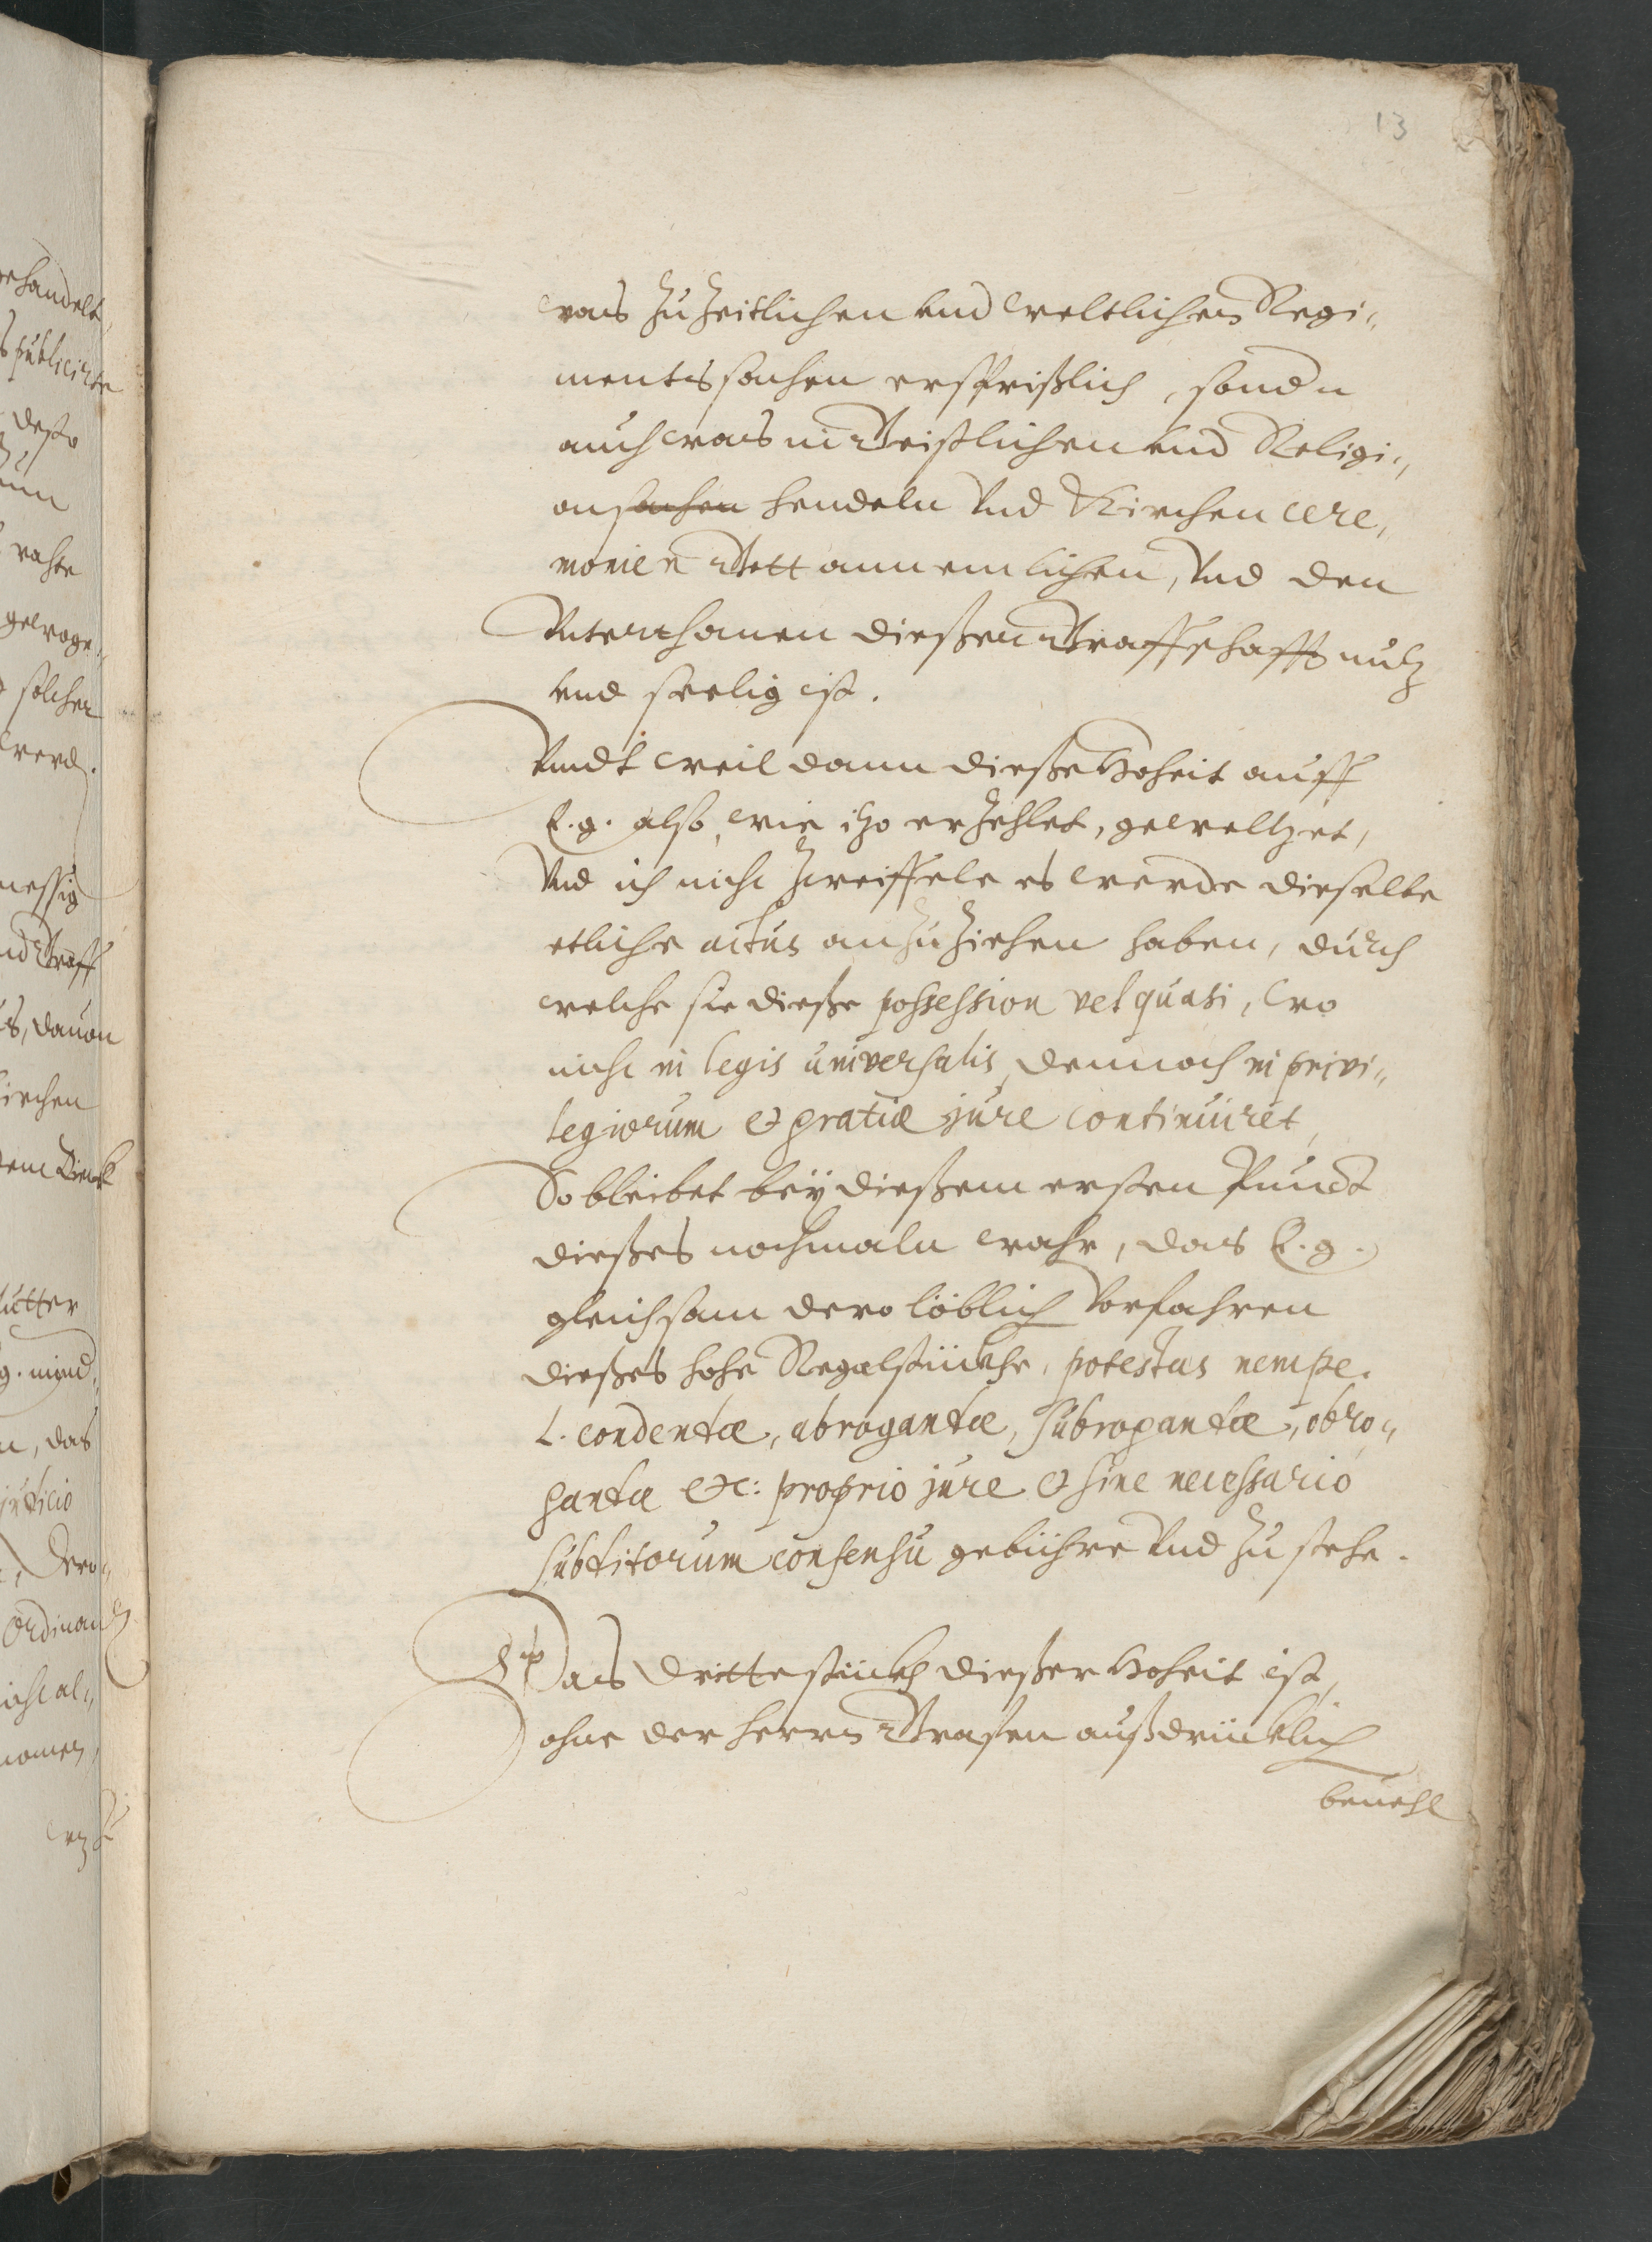 13
was zu zeitlichen vnd weltlichen Regi„
mentssachen ersprißlich, sondn
auch was in Geistlichen vnd Religi„
onsachen hendeln Vnd Kirchen cere„
monien Gott annemlichen, Vnd den
Vnterthanen dießer Graffschafft nutz
vnd seelig ist.
Vndt weil dann dieße Hoheit auff
E. g. also, wie itzo erzehlet, geweltzet,
Vnd ich nicht zweiffele es werde dieselbe
etliche actus anzuziehen haben, durch
welche sie dieße possession vel quasi, wo
nicht in legis universalis, dennoch in privi„
legiorum et gratiæ jure continuiret,
So bleibet beÿ dießem ersten Punct
dießes nochmaln wahr, das E. g.
gleichsam dero löblich Vorfahren
dießes hohe Regalstückhe, potestas nempe.
L. condentæ, abrogantæ, subrogantæ, obro„
gantæ etc: proprio jure et sine necessario
subditorum consensu gebühre Vnd zustehe.
Das dritte stückh dießer Hoheit ist,
ohne der herrn Grafen außdrücklich
beuehl
gehandelt,
publicirte
desto
rahte
gewoge„
solcher
werd.
messig
nd Graff
s, dauon
irchen
em Dienst
utter
g. mind„
n, das
juticio
dero„
Ordinan
icht al„